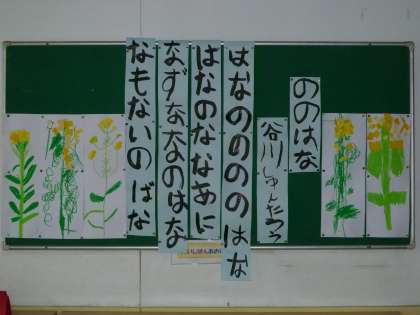 ののはな
谷川しゅんたろう
はなののののはな
はなのななあに
なずななのはな
なもないのばな